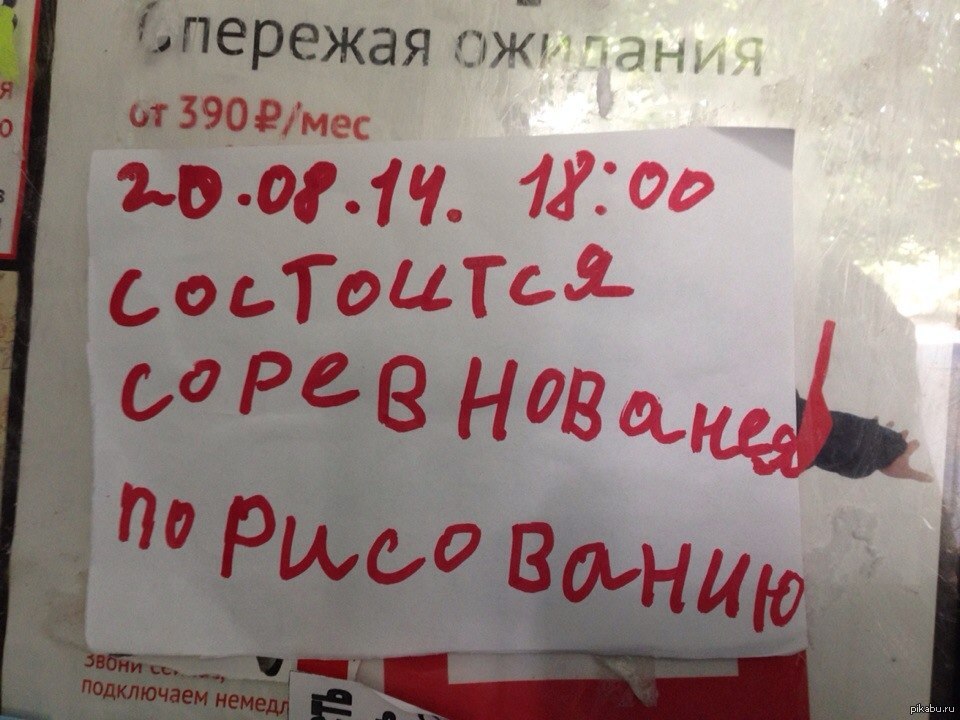 Опережая ожидания
от 390 ₽/мес
20.08.14. 18:00
состоится
соревнованея
по рисованию
Звони
подключаем немедл
сть
pikabu.ru